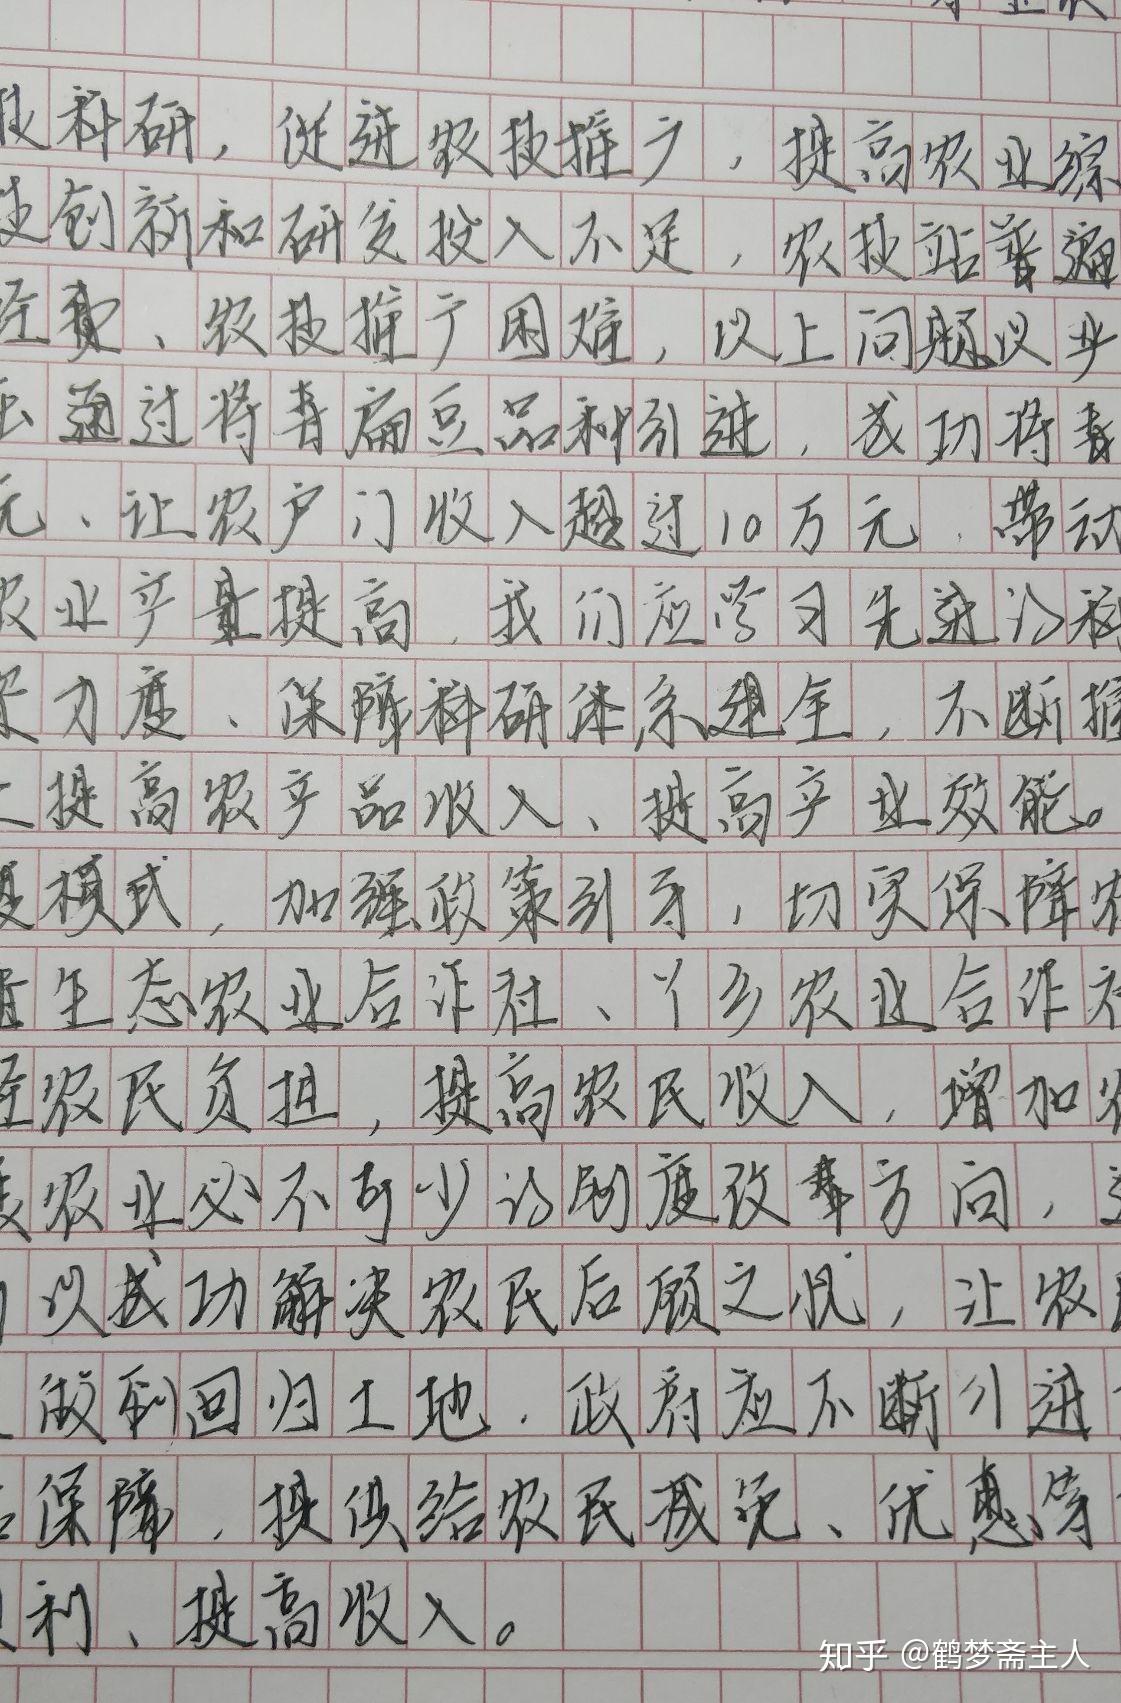 科研，促进农技推广，提高农业综
创新和研发投入不足，农技站普遍
经费、农技推广困难，以上问题
通过将青扁豆品种引进，成功将青
元、让农户门收入超过10万元，带动
农业产量提高，我们应学习先进的科
力度、保障科研体系建全，不断推
提高农产品收入、提高产业效能。
模式，加强政策引导，切实保障农
生态农业合作社、丫乡农业合作社
农民负担，提高农民收入，增加农
农业必不可少的制度改革方向，
以成功解决农民后顾之忧，让农
做到回归土地，政府应不断引进
保障，提供给农民减免、优惠等
利、提高收入。
知乎 @鹤梦斋主人